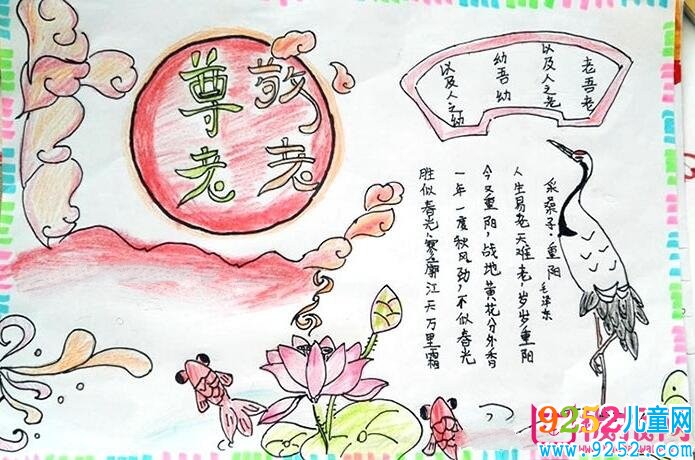 敬老
尊老
老吾老
以及人之老
幼吾幼
以及人之幼
采桑子·重阳
毛泽东
人生易老天难老,岁岁重阳
今又重阳,战地黄花分外香
一年一度秋风劲,不似春光
胜似春光,寥廓江天万里霜
9252儿童网
www.9252.com